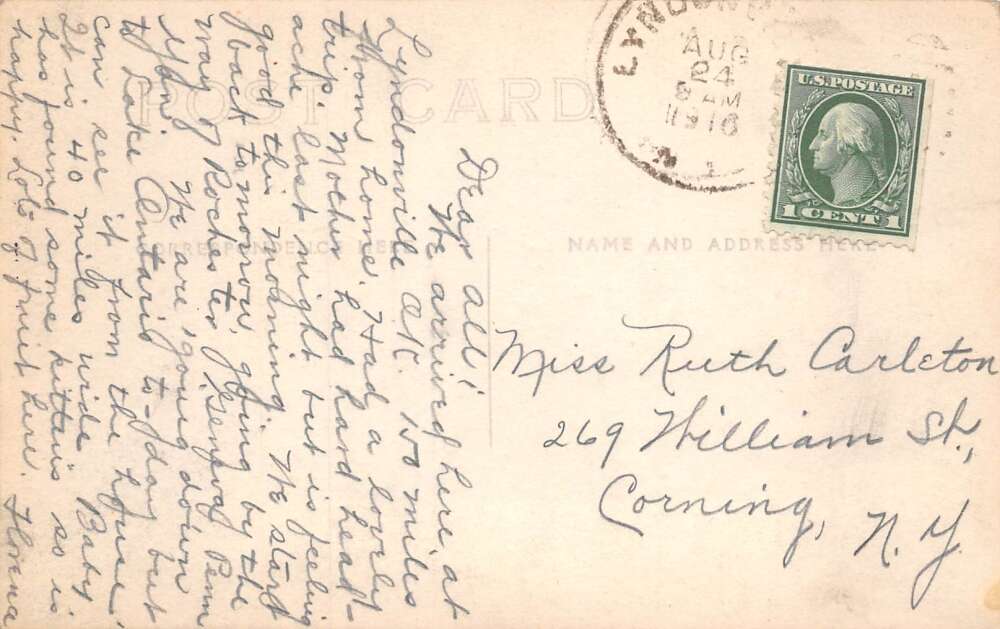 POST CARD
CORRESPONDENCE HERE
NAME AND ADDRESS HERE
AUG
24
8 AM
1916
U.S. POSTAGE
1 CENT 1
Dear all:
We arrived here at
Lyndonville O.K. 150 miles
from home. Had a lovely
trip. Mother had hard head-
ache last night but is feeling
good this morning. We start
back to-morrow, going by the
way of Rochester, Geneva, Penn
Yan. We are going down
to Lake Ontario to-day but
can see it from the house.
It is 40 miles wide. Baby
has found some kittens so is
happy. Lots of fruit here.
Miss Ruth Carleton
269 William St.,
Corning,
N.Y.